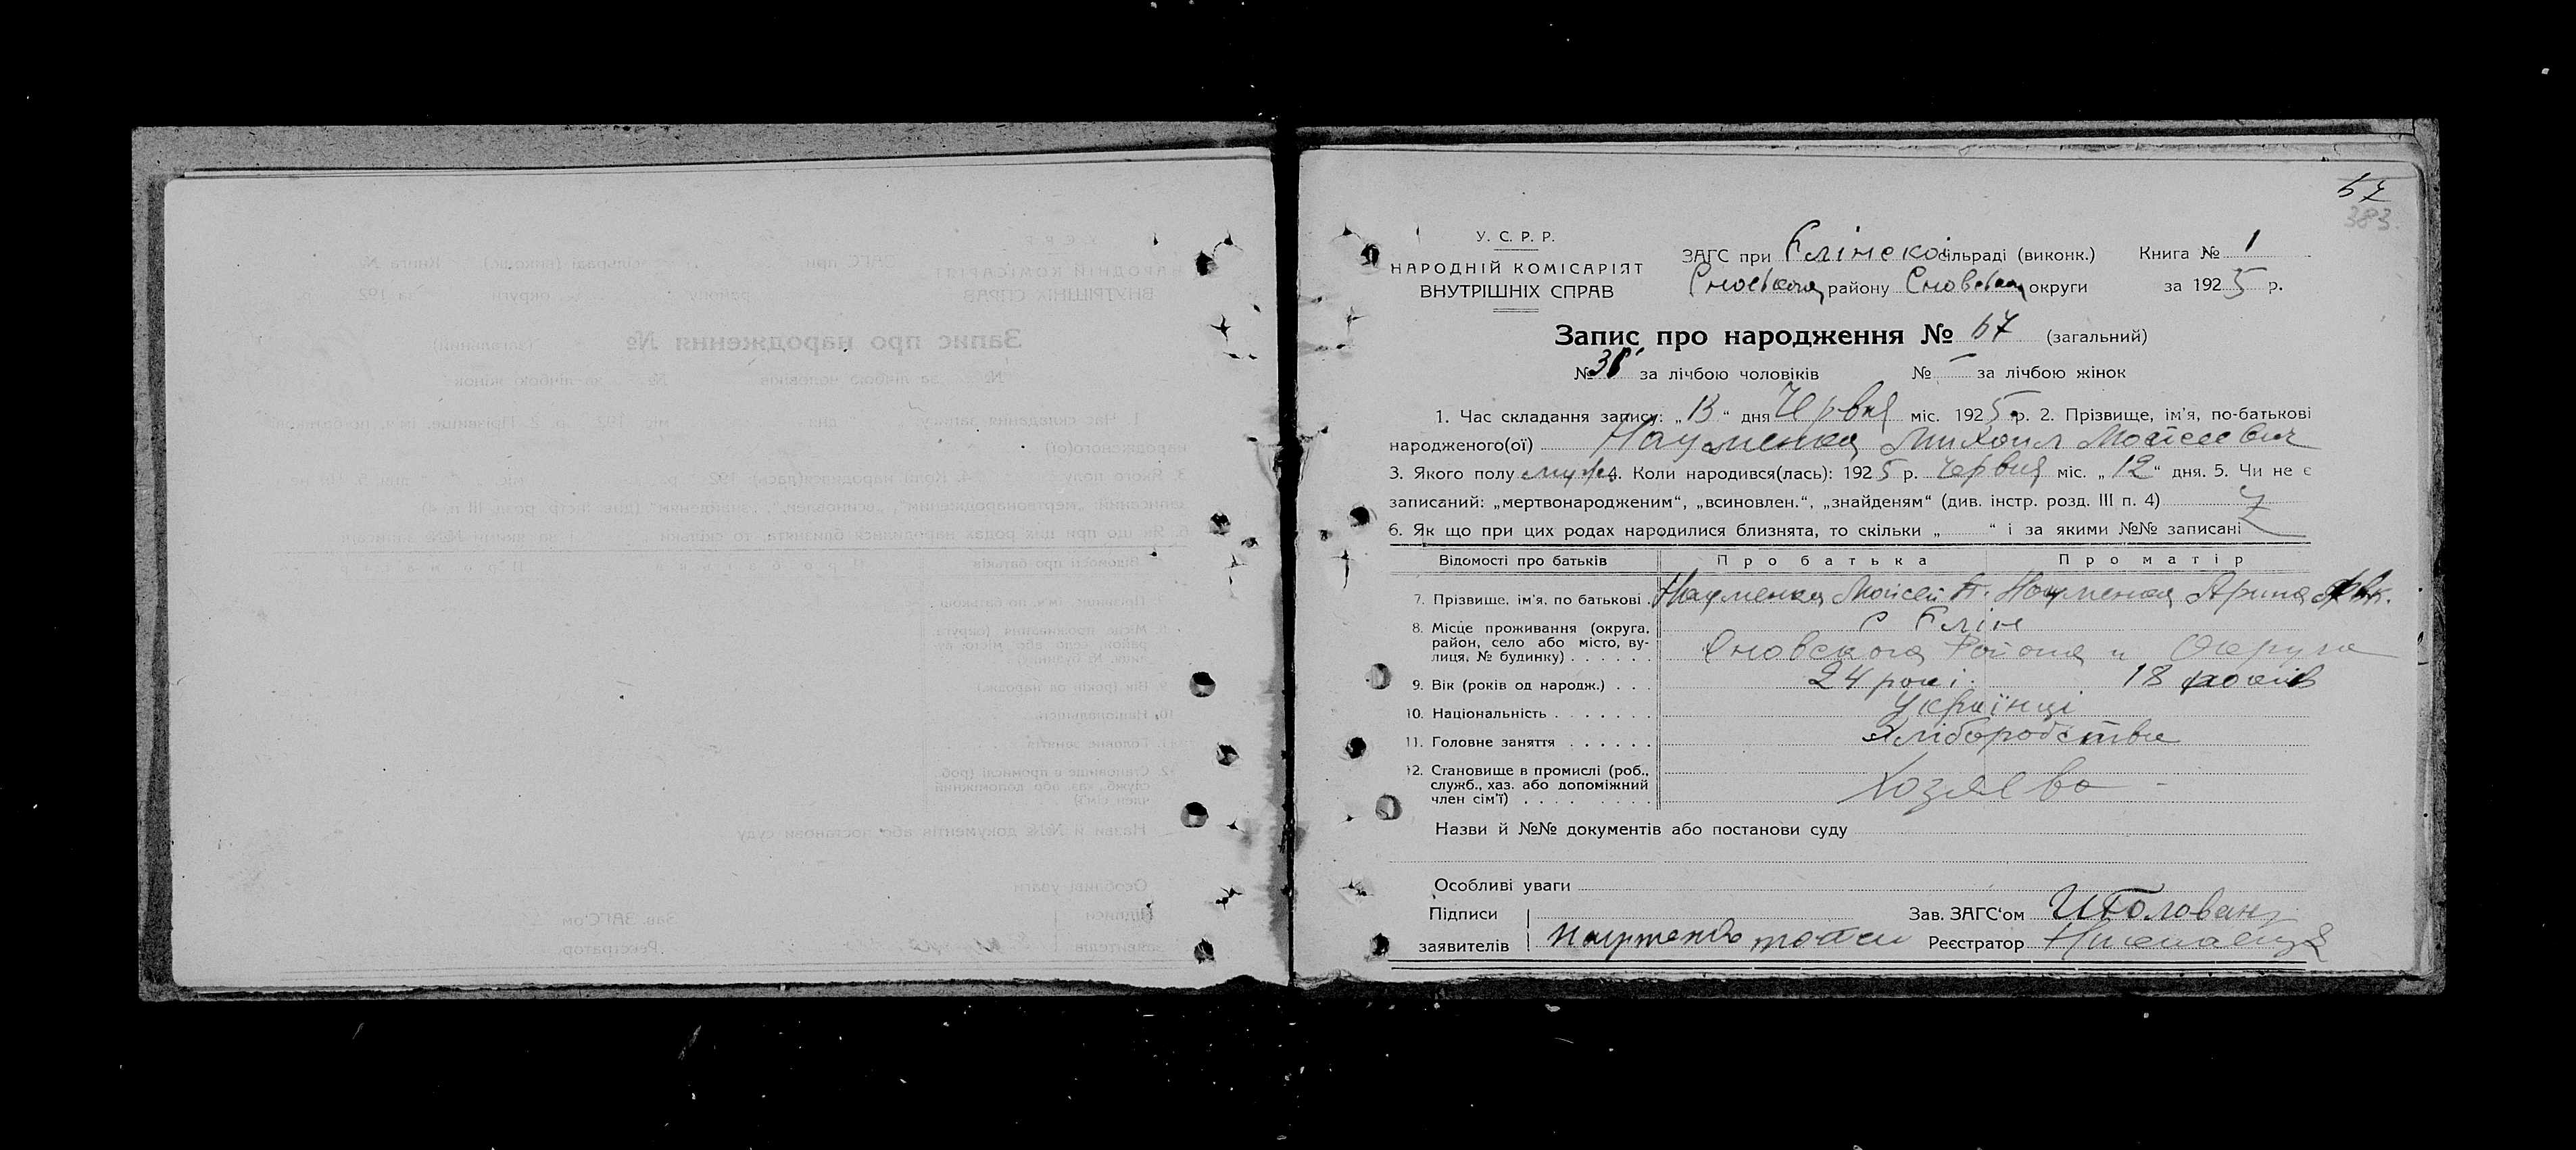 67
383.
У. С. Р. Р.
НАРОДНІЙ КОМІСАРІЯТ
ВНУТРІШНІХ СПРАВ
ЗАГС при Єлінскої сільраді (виконк.) Книга № 1
Сновского району Сновской округи за 1925 р.
Запис про народження № 67 (загальний)
№ 38 за лічбою чоловіків № — за лічбою жінок
1. Час складання запису: „13“ дня Червня міс. 1925 р. 2. Прізвище, ім'я, по-батькові
народженого(ої) Науменко Михаил Мойсеевич
3. Якого полу муж. 4. Коли народився(лась): 1925 р. Червня міс. „12“ дня. 5. Чи не є
записаний: „мертвонародженим“, „всиновлен.“, „знайденям“ (див. інстр. розд. III п. 4)
6. Як що при цих родах народилися близнята, то скільки „ “ і за якими №№ записані
Відомості про батьків Про батька Про матір
7. Прізвище, ім'я, по батькові . Науменко Мойсей Науменко Ярина
8. Місце проживання (округа, район, село або місто, вулиця, № будинку) . . . . . . с Єлін
Сновского Района и Округа
9. Вік (років од народж.) . . . 24 рокі 18 рокив
10. Національність . . . . . . . Українці
11. Головне заняття . . . . . . Хліборобство
12. Становище в промислі (роб., служб., хаз. або допоміжний член сім'ї) . . . . . . . . Хозяева
Назви й №№ документів або постанови суду
Особливі уваги
Підписи
заявителів Науменко
Зав. ЗАГС'ом И Головань
Реєстратор